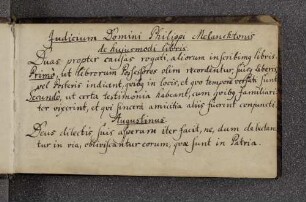 Judicium Domini Philippi Melanchtonis
de hujusmodi libris
Duas propter causas rogati, aliorum inscribimus libris.
Primo, ut librorum Possessores olim recordentur, suisq liberis
vel Posteris indicent, quibq in locis, et quo tempore versati sunt
Secundo, ut certa testimonia habeant, cum quibq familiari
ter vixerint, et qui sincera amicitia aliis fuerint conjuncti.
Augustinus.
Deus dilectis suis asperum iter facit, ne, dum delectan
tur in via, obliviscantur eorum, quæ sunt in Patria.